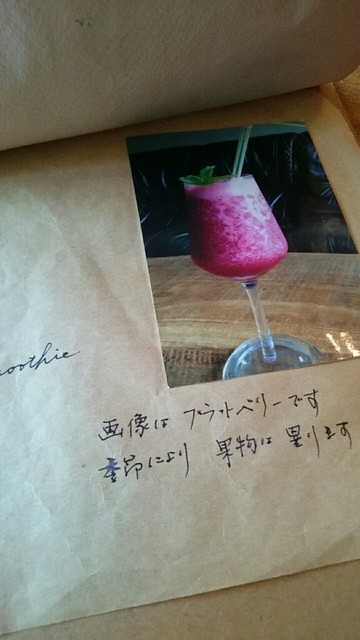 oothie
画像は フラットベリーです
季節により 果物は 異ります